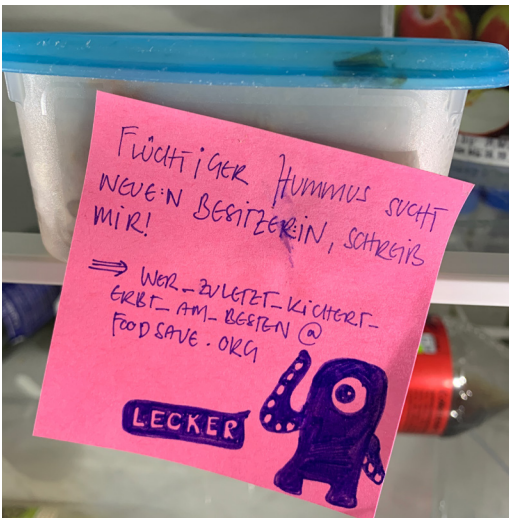 FLÜCHTIGER HUMMUS SUCHT
NEUE:N BESITZER:IN, SCHREIB
MIR!
⇒ WER_ZULETZT_KICHERT_
ERBT_AM_BESTEN@
FOODSAVE.ORG
LECKER